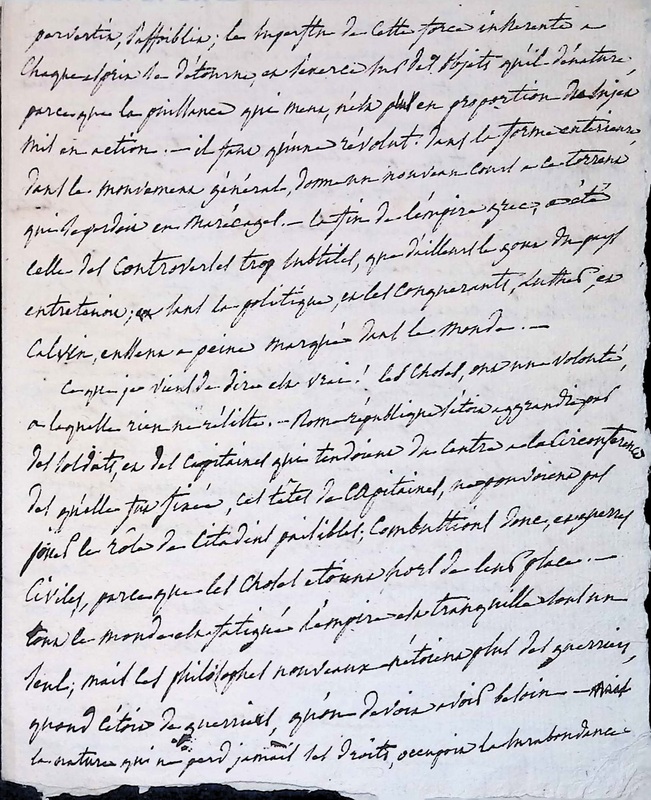 pervertir, s'affoiblir ; le superflu de cette force inhérente a
chaque esprit se détourne, et s'éxerce sur des objets qu'il dénature,
parceque la puissance qui meut, n'est plus en proportion du sujet
mis en action. — il faut qu'une révolut. dans la forme extérieure,
dans le mouvement général, donne un nouveau cours a ce torrent
qui se perdoit en marécages. — la fin de l'empire grec, a été
celle des controverses trop subtiles, que d'ailleurs le gout du pays
entretenoit ; et sans la politique, et les conquerants, Luther, et
Calvin, eussent a peine marqué dans le monde. —
ce que je viens de dire est vrai ! les choses, ont une volonté,
a laquelle rien ne résiste. — Rome république s'étoit aggrandie par
des soldats, et des capitaines qui tendoient du centre a la circonférence
des qu'elle fut fixée, ces têtes de capitaines, ne pouvoient pas
jouer le rôle de citadins paisibles ; combustions donc, et guerres
civiles, parceque les choses etoient hors de leur place. —
tout le monde est fatigué l'empire est tranquille sous un
seul ; mais les philosophes nouveaux n'étoient plus des guerriers,
quand c'étoit de guerriers, qu'on devoit avoir besoin —
la nature qui ne perd jamais ses droits, occupoit la surabondance